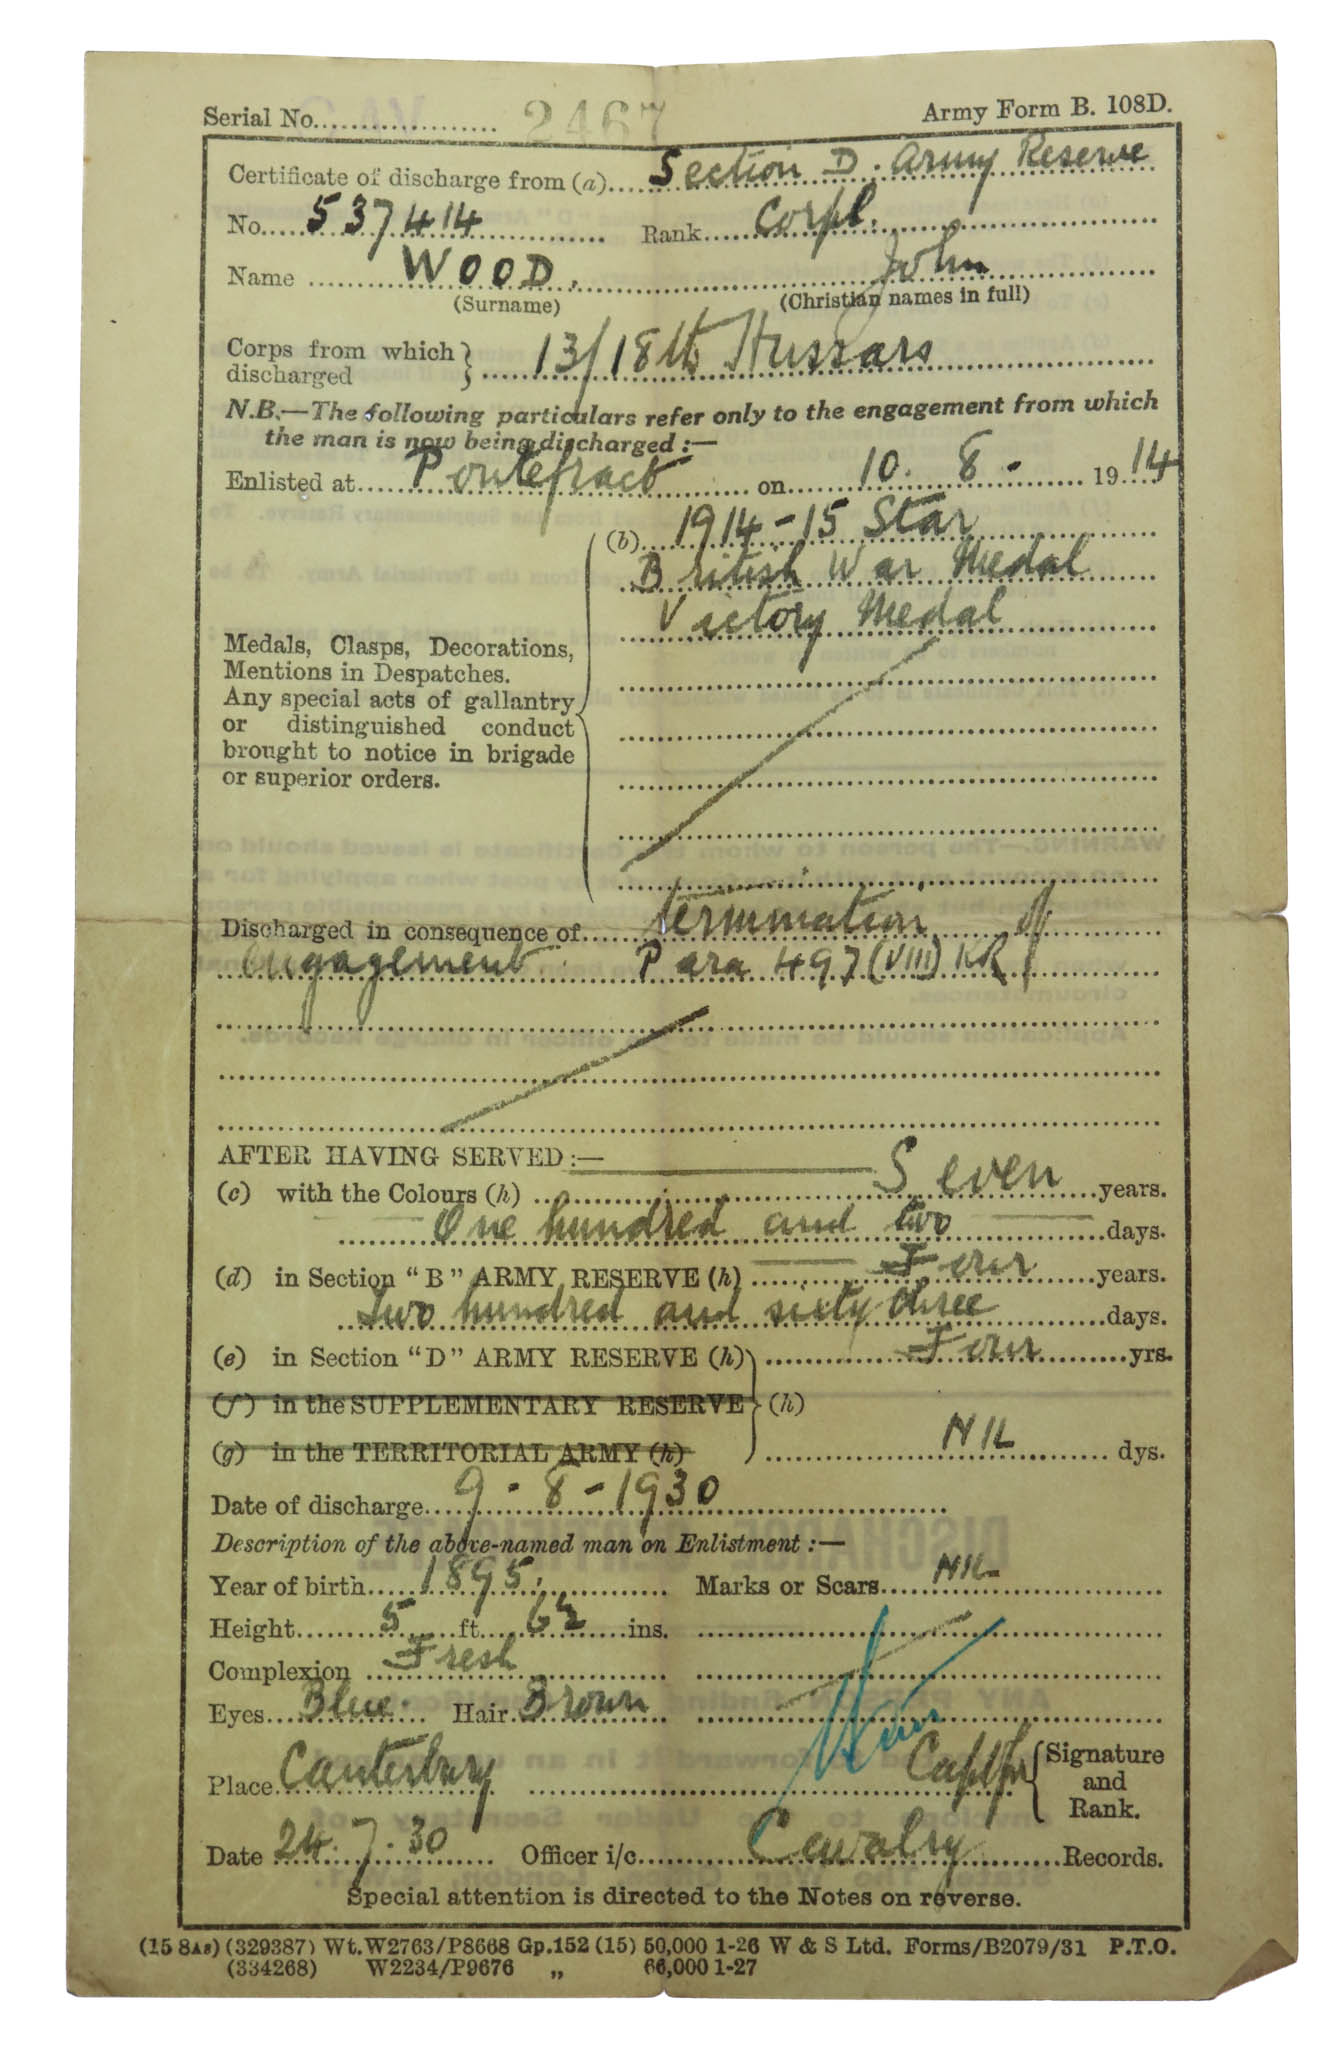 Serial No. 2467 Army Form B. 108D.
Certificate of discharge from (a) Section D. Army Reserve
No. 537414 Rank Corpl.
Name WOOD, John
(Surname) (Christian names in full)
Corps from which discharged } 13/18th Hussars
N.B.—The following particulars refer only to the engagement from which
the man is now being discharged:—
Enlisted at Pontefract on 10. 8 - 1914
(b) 1914-15 Star
British War Medal
Victory Medal
Medals, Clasps, Decorations,
Mentions in Despatches.
Any special acts of gallantry
or distinguished conduct
brought to notice in brigade
or superior orders.
Discharged in consequence of termination of
Engagement. Para 497 (VIII) KR
AFTER HAVING SERVED:—
(c) with the Colours (h) Seven years.
One hundred and two days.
(d) in Section "B" ARMY RESERVE (h) Four years.
two hundred and sixty three days.
(e) in Section "D" ARMY RESERVE (h) Four yrs.
(f) in the SUPPLEMENTARY RESERVE (h)
(g) in the TERRITORIAL ARMY (h) NIL dys.
Date of discharge 9-8-1930
Description of the above-named man on Enlistment:—
Year of birth 1895. Marks or Scars NIL
Height 5 ft. 6½ ins.
Complexion Fresh
Eyes Blue. Hair Brown
Place Canterbury Capt for { Signature and Rank.
Date 24.7.30 Officer i/c Cavalry Records.
Special attention is directed to the Notes on reverse.
(15 8As) (329387) Wt.W2763/P8668 Gp.152 (15) 50,000 1-26 W & S Ltd. Forms/B2079/31 P.T.O.
(334268) W2234/P9676 „ 66,000 1-27